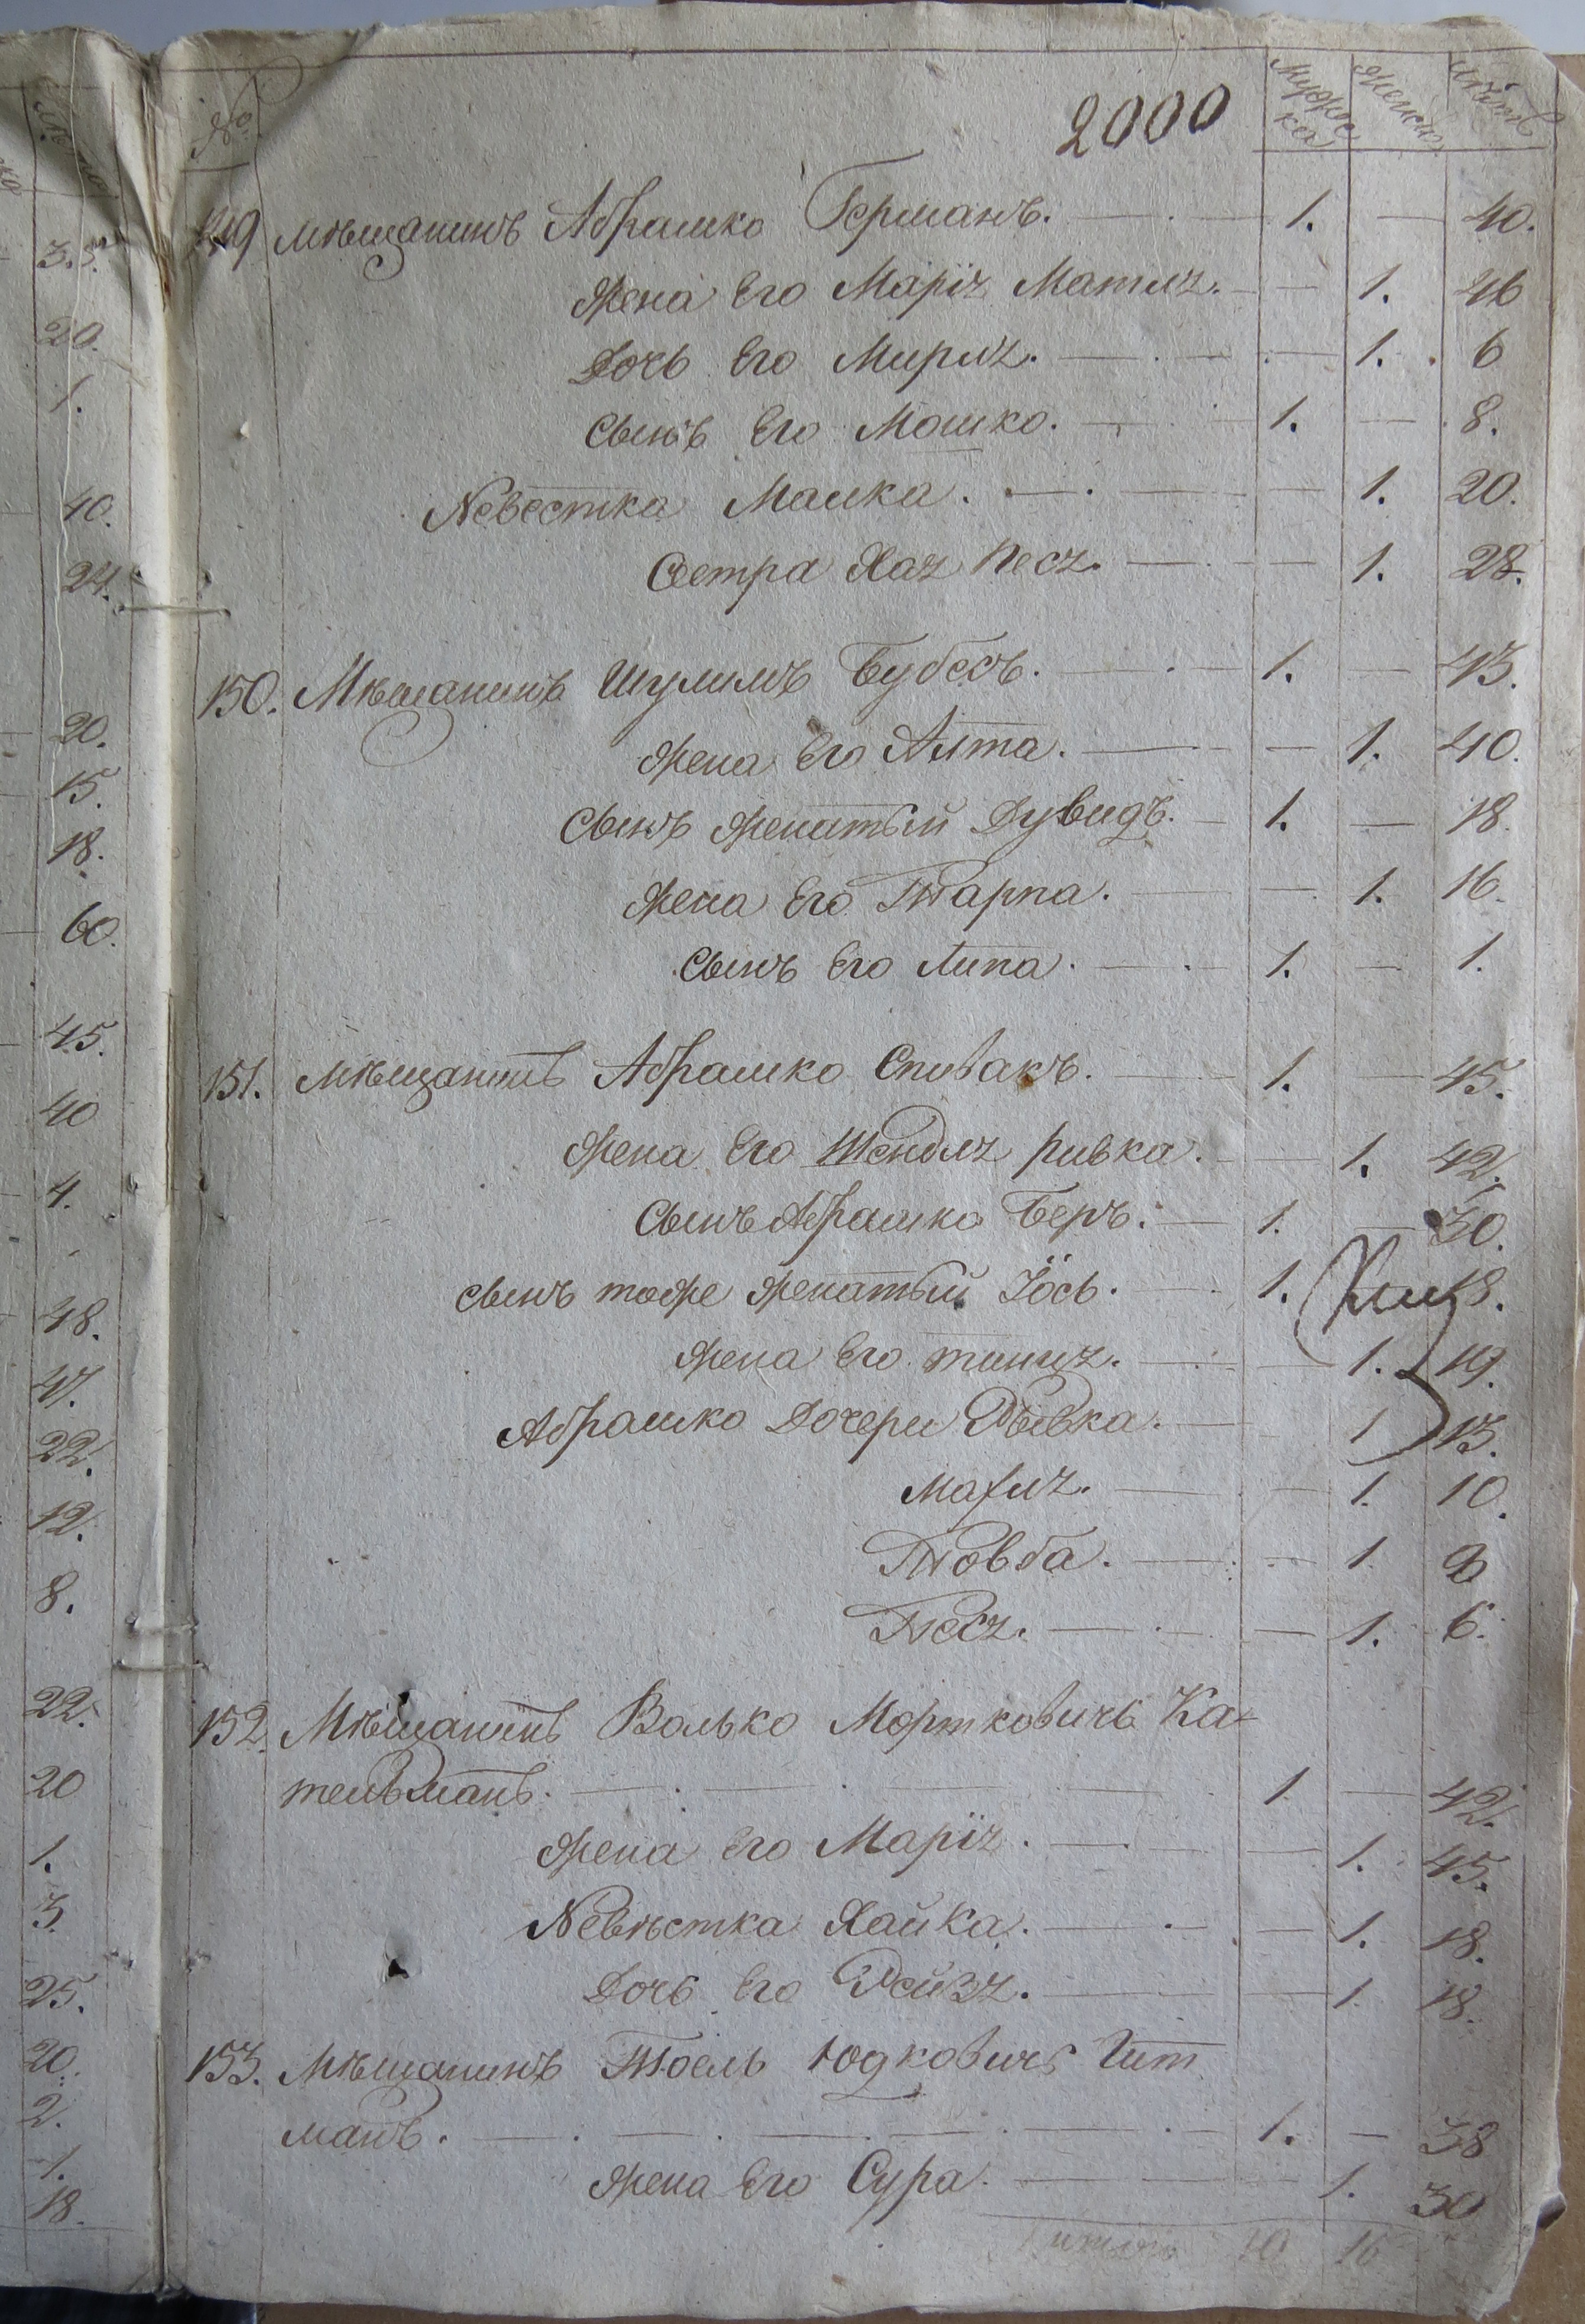 2000
№ мужеска женска лѣтъ
149 мѣщанинъ Абрашко Германъ. 1. — 40.
Жена Его Марія Матля. — 1. 46
Дочь Его Мирля. — 1. 6
Сынъ Его Мошко. 1. — 8.
Невестка Малка. — 1. 20.
Сестра Хая Песя. — 1. 28.
150. Мѣщанинъ Шулимъ Бубесъ. 1. — 43.
Жена Его Алта. — 1. 40.
Сынъ женатый Дувидъ. 1. — 18.
Жена Его Тарпа. — 1. 16.
Сынъ Его Липа. 1. — 1.
151. мѣщанинъ Абрашко Спивакъ. 1. — 45.
Жена Его Шендля Ривка. — 1. 42.
Сынъ Абрашко Беръ. 1. — 30.
Сынъ тоже женатый Іось. 1. 18.
Жена Его 1. 19.
Абрашко Дочери Рывка. 1 13.
Махля. — 1. 10.
Товба. — 1 9
Песя. — 1. 6.
152. Мѣщанинъ Волько Мортковичъ Ка-
тельманъ. 1 — 42.
Жена Его Марія. — 1. 45.
Невѣстка Хайка. — 1. 18.
Дочь Его Рейзя. — 1. 18.
153. Мѣщанинъ Іоель Юдковичъ Гит
манъ. 1. — 38
Жена Его Сура. — 1. 30
итого 10 16
3.5.
20.
1.
40.
24.
20.
15.
18.
60.
45.
40
4.
48.
47.
22.
12.
8.
22.
20
1.
3
25.
20.
2.
1.
18.